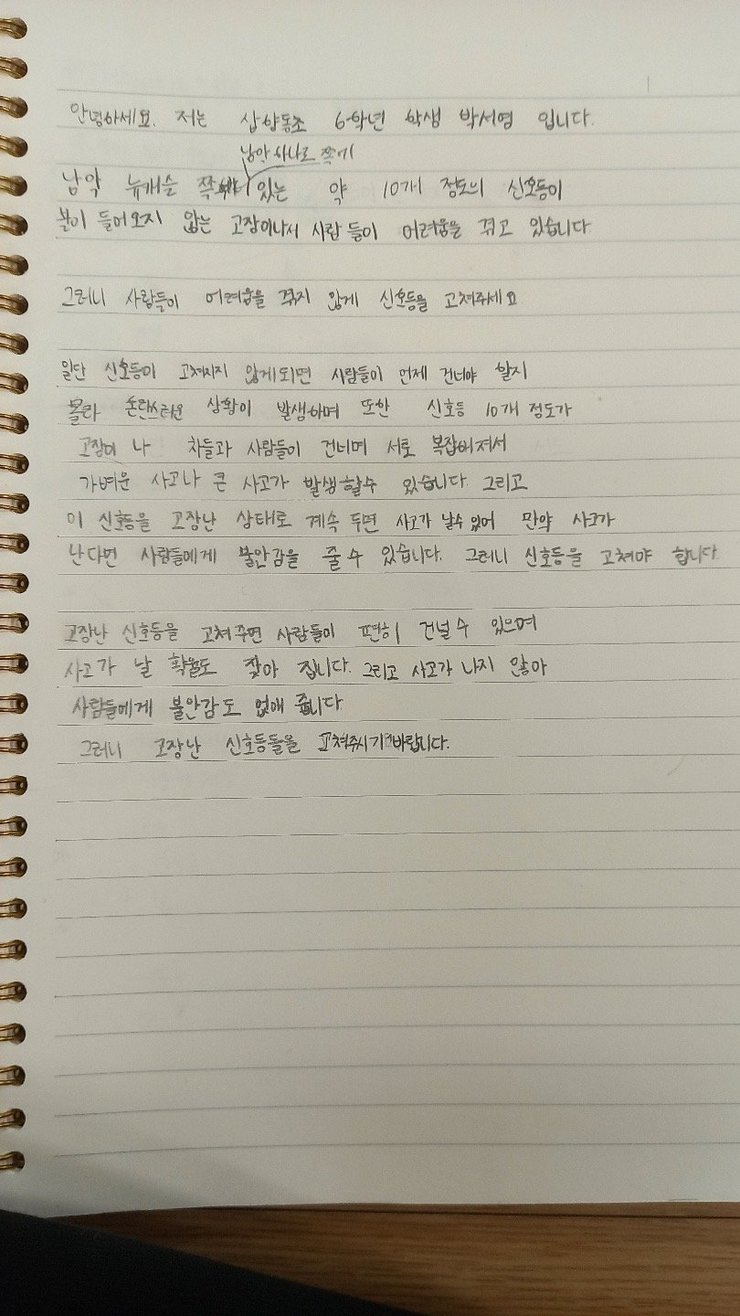 안녕하세요. 저는 삼향동초 6학년 학생 박서영 입니다.
남악 하나로 쪽에
남악 뉴캐슬 쪽 있는 약 10개 정도의 신호등이
불이 들어오지 않는 고장이나서 사람들이 어려움을 겪고 있습니다
그러니 사람들이 어려움을 겪지 않게 신호등을 고쳐주세요
일단 신호등이 고쳐지지 않게되면 사람들이 언제 건너야 할지
몰라 혼란스러운 상황이 발생하며 또한 신호등 10개 정도가
고장이 나 차들과 사람들이 건너며 서로 복잡해져서
가벼운 사고나 큰 사고가 발생할수 있습니다. 그리고
이 신호등을 고장난 상태로 계속 두면 사고가 날수있어 만약 사고가
난다면 사람들에게 불안감을 줄 수 있습니다. 그러니 신호등을 고쳐야 합니다
고장난 신호등을 고쳐주면 사람들이 편히 건널 수 있으며
사고가 날 확율도 낮아 집니다. 그리고 사고가 나지 않아
사람들에게 불안감도 없애 줍니다
그러니 고장난 신호등들을 고쳐주시기 바랍니다.